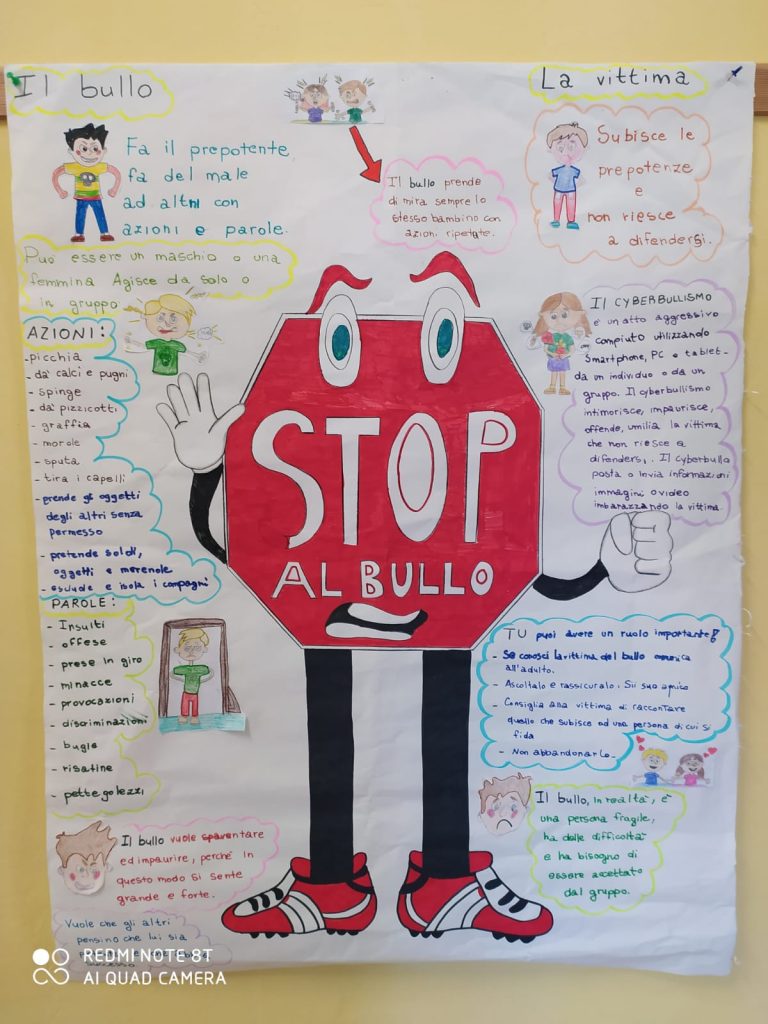 Il bullo
Fa il prepotente,
fa del male
ad altri con
azioni e parole.
Può essere un maschio o una
femmina Agisce da solo o
in gruppo
AZIONI:
-picchia
- dà calci e pugni
- spinge
- dà pizzicotti
- graffia
- morde
- sputa
- tira i capelli
- prende gli oggetti
degli altri senza
permesso
- pretende soldi,
oggetti e merende
- esclude e isola i compagni
PAROLE:
- Insulti
- offese
- prese in giro
- minacce
- provocazioni
- discriminazioni
- bugie
- risatine
- pettegolezzi
Il bullo vuole spaventare
ed impaurire, perché in
questo modo si sente
grande e forte.
Vuole che gli altri
pensino che lui sia
Il bullo prende
di mira sempre lo
stesso bambino con
azioni ripetute.
STOP
AL BULLO
La vittima
Subisce le
prepotenze
e
non riesce
a difendersi.
Il CYBERBULLISMO
è un atto aggressivo
compiuto utilizzando
smartphone, PC o tablet
da un individuo o da un
gruppo. Il cyberbullismo
intimorisce, impaurisce,
offende, umilia la vittima
che non riesce a
difendersi. Il cyberbullo
posta o invia informazioni
immagini o video
imbarazzando la vittima.
TU puoi avere un ruolo importante!
- Se conosci la vittima del bullo comunica
all'adulto.
- Ascoltalo e rassicuralo. Sii suo amico
- Consiglia alla vittima di raccontare
quello che subisce ad una persona di cui si
fida
- Non abbandonarlo.
Il bullo, in realtà, è
una persona fragile,
ha delle difficoltà
e ha bisogno di
essere accettato
dal gruppo.
REDMI NOTE 8T
AI QUAD CAMERA